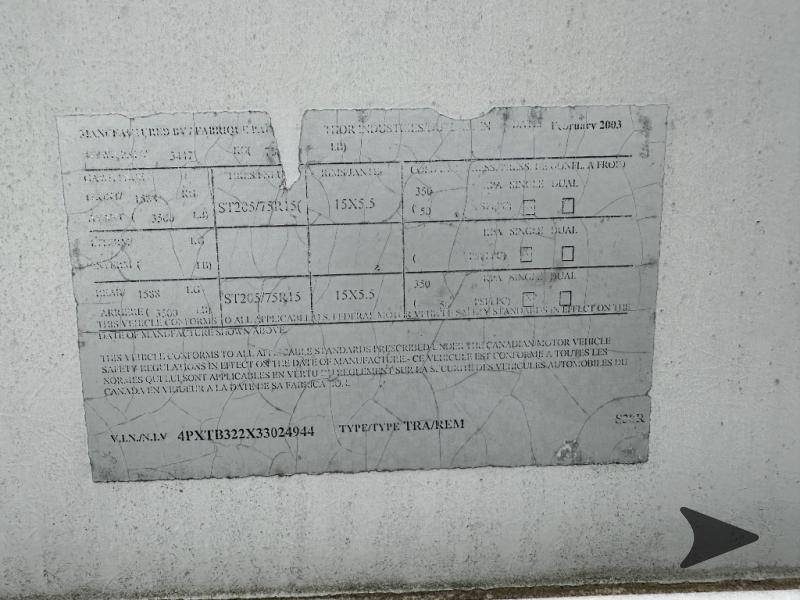 MANUFACTURED BY / FABRIQUE PAR THOR INDUSTRIES February 2003
3447 KG( LB)
TIRES/PNEU RIMS/JANTES
1588 KG 350 KPA SINGLE DUAL
3500 LB) ST205/75R15( 15X5.5 ( 50 PSI/LPC)
LG KPA SINGLE DUAL
INTERM ( LB) ( PSI/LPC)
REAR/ 1588 LG 350 KPA SINGLE DUAL
ARRIERE ( 3500 LB) ST205/75R15 15X5.5 ( 50 PSI/LPC)
THIS VEHICLE CONFORMS TO ALL APPLICABLE U.S. FEDERAL MOTOR VEHICLE SAFETY STANDARDS IN EFFECT ON THE
DATE OF MANUFACTURE SHOWN ABOVE.
THIS VEHICLE CONFORMS TO ALL APPLICABLE STANDARDS PRESCRIBED UNDER THE CANADIAN MOTOR VEHICLE
SAFETY REGULATIONS IN EFFECT ON THE DATE OF MANUFACTURE - CE VEHICULE EST CONFORME A TOUTES LES
NORMES QUI LUI SONT APPLICABLES EN VERTU DU REGLEMENT SUR LA SECURITE DES VEHICULES AUTOMOBILES DU
CANADA EN VIGUEUR A LA DATE DE SA FABRICATION.
V.I.N./N.I.V 4PXTB322X33024944 TYPE/TYPE TRA/REM